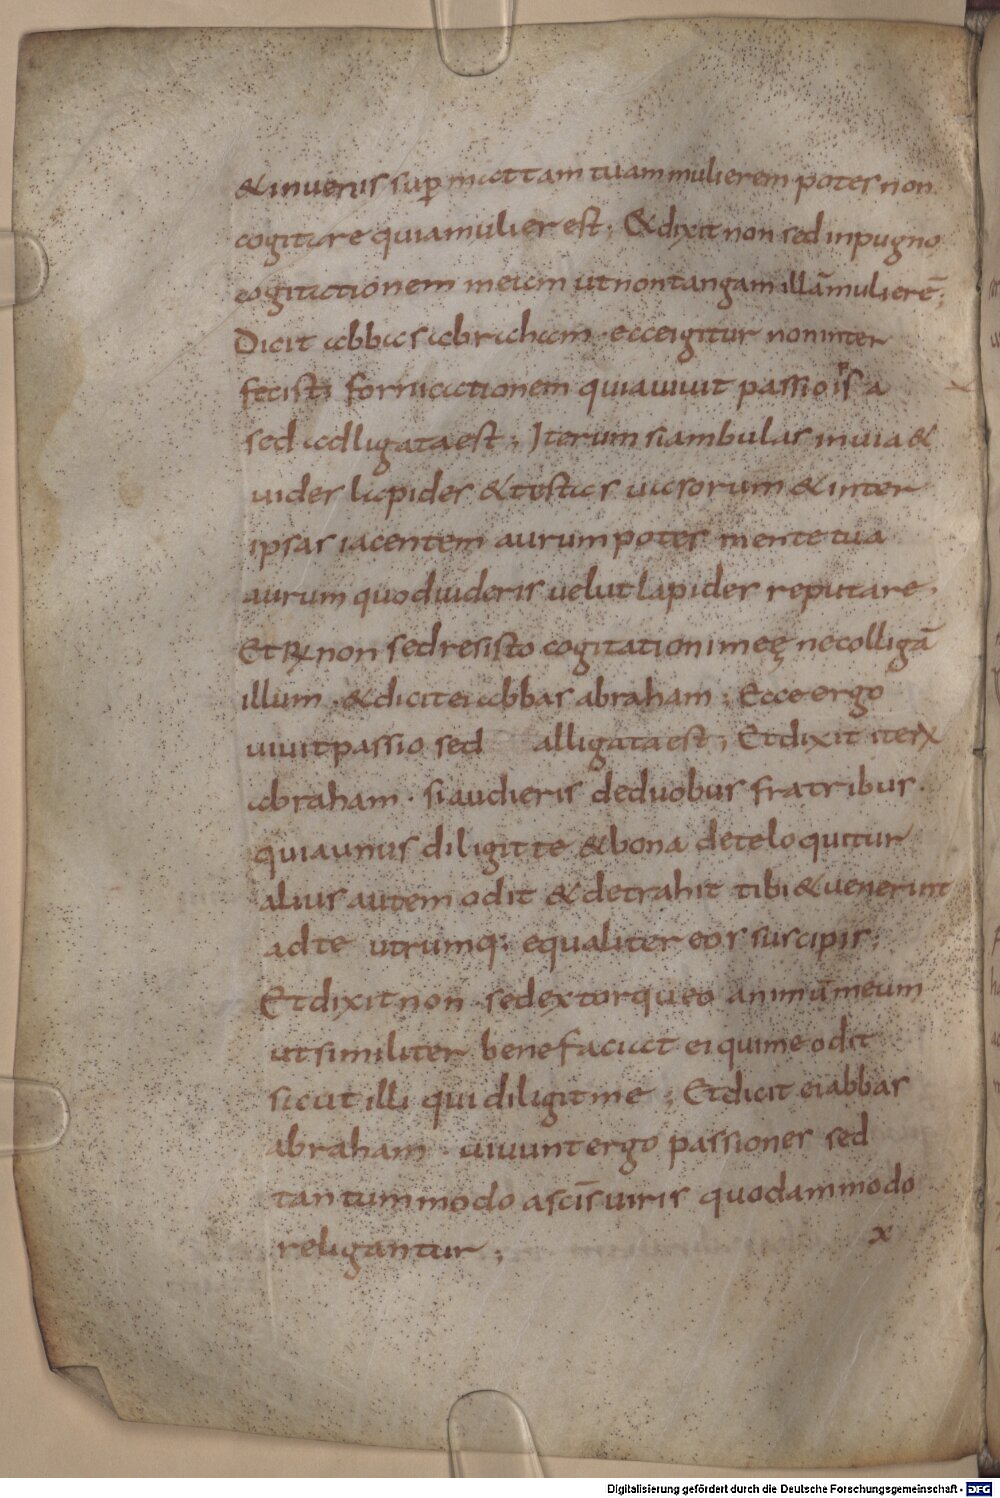 & inuenis sup mattam tuam mulierem potes non
cogitare quia mulier est; & dixit non sed inpugno
cogitationem meam ut non tangam illā mulierē;
Dicit abbas abraham · ecce igitur non inter
fecisti fornicationem quia uiuit passio ipsa
sed adligata est; Iterum si ambulas in uia &
uides lapides & testas uasorum & inter
ipsas iacentem aurum potes mente tua
aurum quod uideris uelut lapides reputare.
Et R non sed resisto cogitationi meę ne colligā
illum · & dicit ei abbas abraham; Ecce ergo
uiuit passio sed alligata est; Et dixit iter
abraham · si audieris de duobus fratribus.
quia unus diligit te & bona de te loquitur
alius autem odit & detrahit tibi & uenerint
ad te utrumq; equaliter eos suscipis;
Et dixit non · sed extorqueo animū meum
ut similiter bene faciat ei qui me odit
sicut illi qui diligit me; Et dicit ei abbas
abraham · uiuunt ergo passiones sed
tantummodo a scīs uiris quodammodo
religantur; x
Digitalisierung gefördert durch die Deutsche Forschungsgemeinschaft - DFG